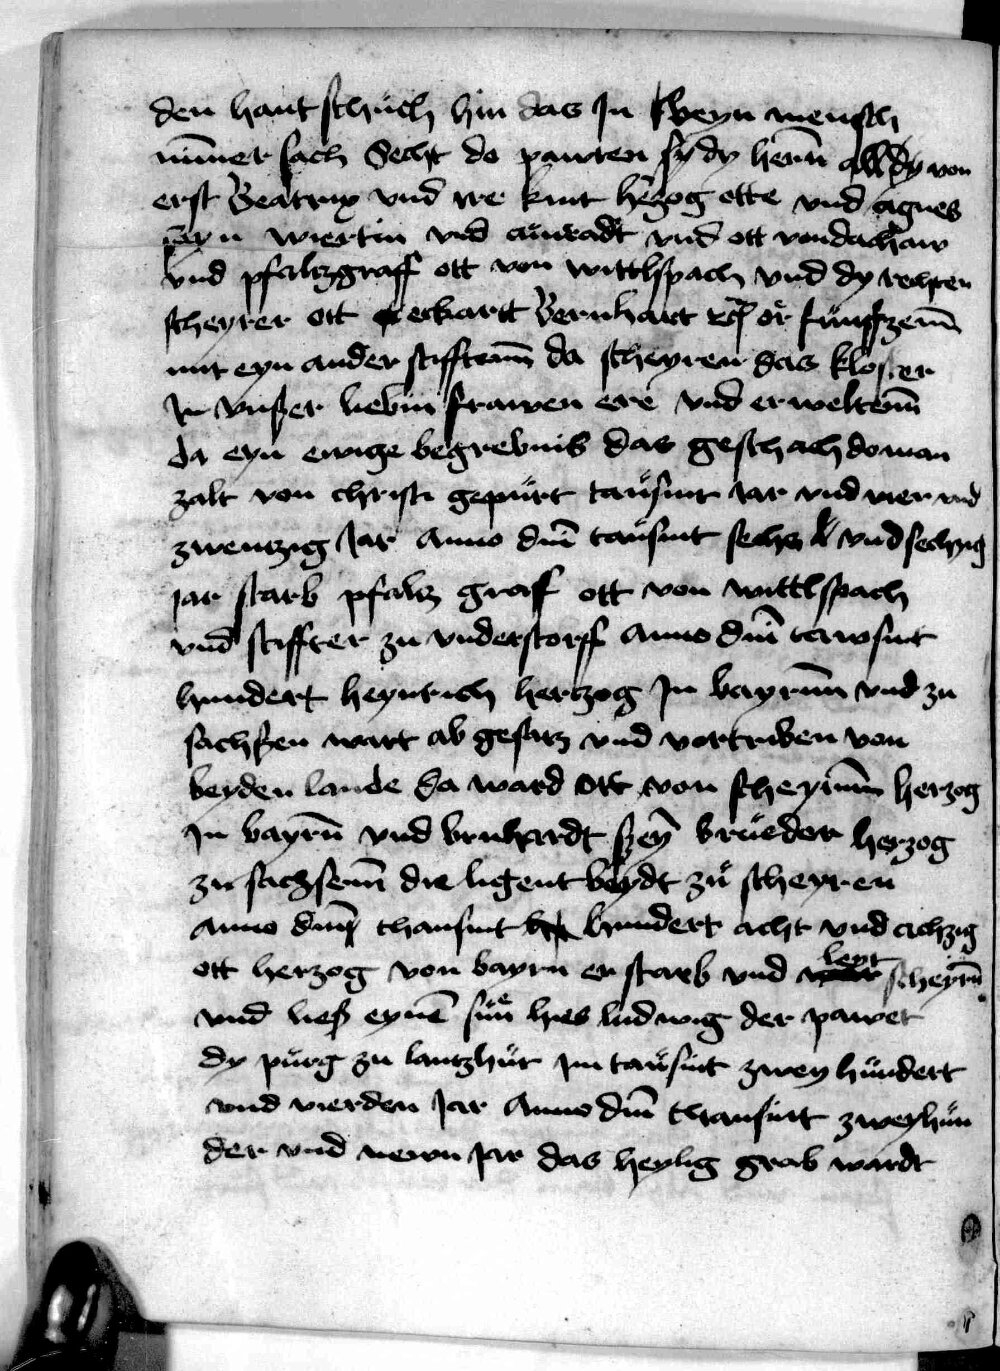 den hantschuch hin das In kheyn mensch
nimer sach Secht do pawten sy dy herñ all dy von
erst Beatrix vnd ire kint herzog otte vnd agnes
seyn wiertin vnd cunradt vnd ott von dachaw
vnd pfaltzgraff ott von wittlspach vnd dy rechten
scheyrer ott eckartt Bernhart
mit eyn ander stifftenn da scheyren das kloster
In vnßer liebin frawen ere vnd erweltenn
da eyn ewige begrebnis das geschach do man
zalt von christi gepürt taüsint iar vnd vier vnd
zwentzig Jar Anno dm̄ taüsint sechs vnd sechzig
iar starb pfaltz graff ott von wittlspach
vnd stiffter zu vnderstorff Anno dm̄ tawsint
hundert heynrich hertzog In bayrnn vnd zu
sachßen wart ab gesatz vnd vortriben von
beyden lande da ward ott von scheyrnn herzog
In bayrn̄ vnd bernhardt seyn brüeder herzog
zu sachsenn die ligent beydt zu scheyren
Anno dm̄ thausint hundert acht vnd achzig
ott herzog von bayrn er starb vnd leyt scheyrn̄
vnd ließ eynē sün hies ludwig der pawet
dy pürg zu lantzhüt im taüsint zwey hundert
vnd vierden Jar Anno dm̄ thausint zweyhün
der vnd newn Jar das heylig grab wardt